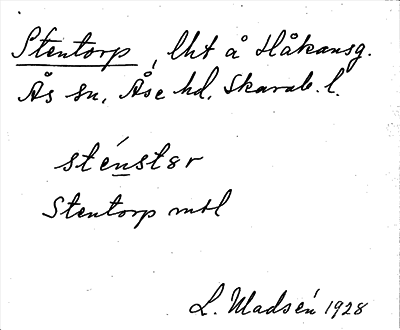 Stentorp, lht å Håkansg.
Ås sn, Åse hd, Skarab. l.
sténstər
Stentorp mtl
L. Madsén 1928